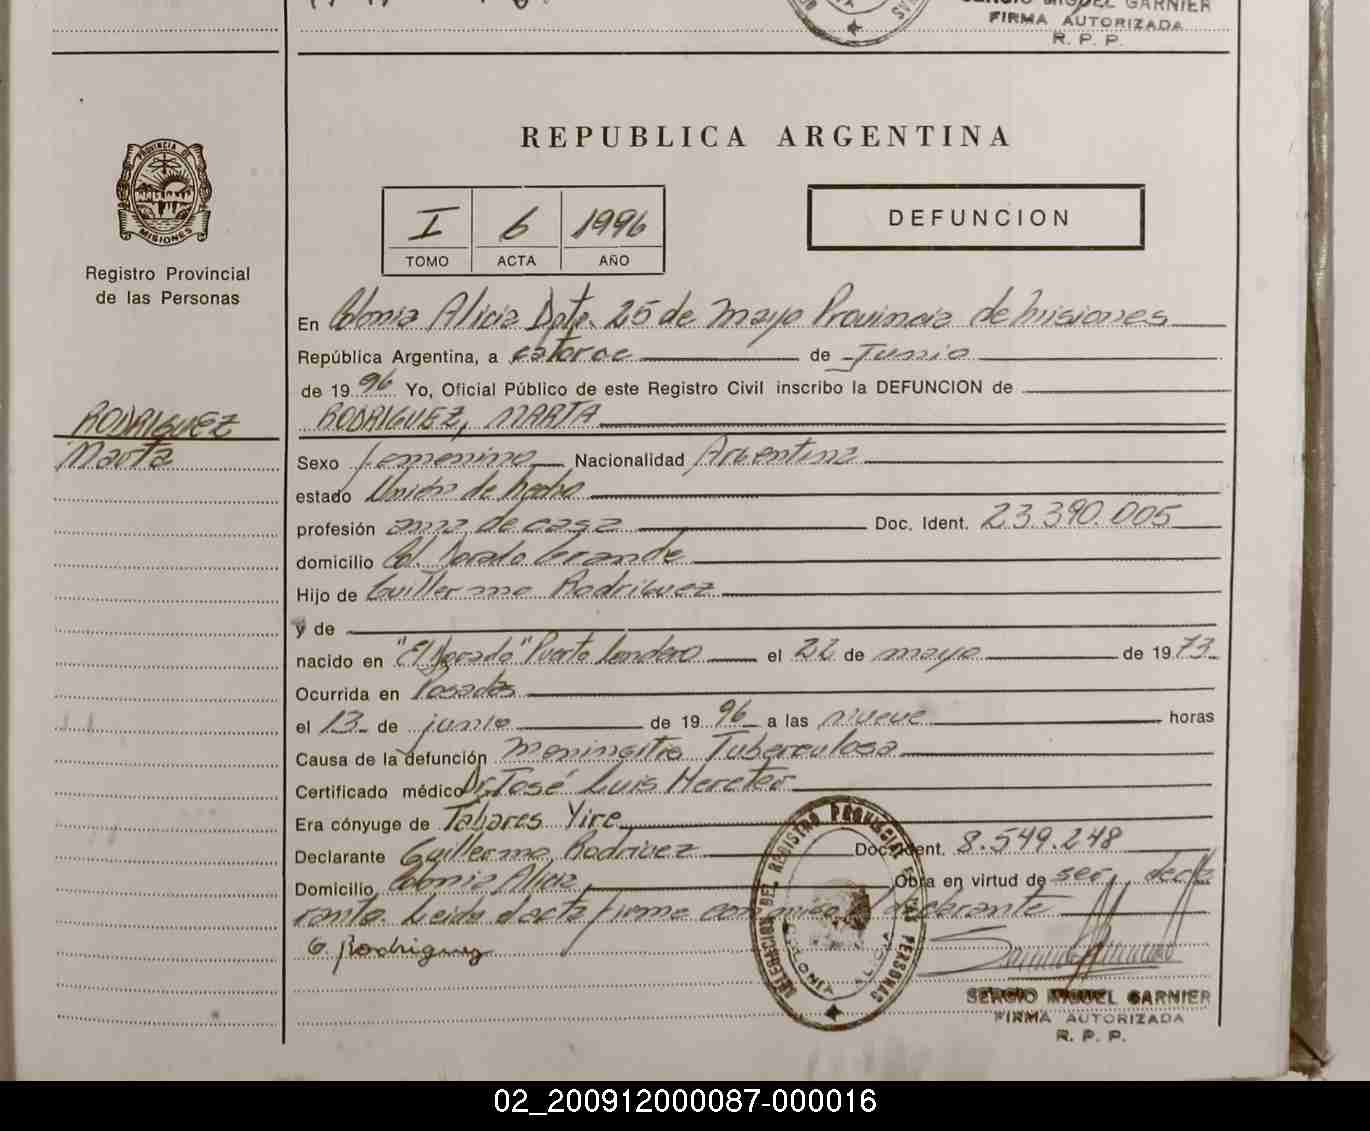 SERGIO MIGUEL GARNIER
FIRMA AUTORIZADA
R. P. P.
PROVINCIA DE
MISIONES
Registro Provincial
de las Personas
REPUBLICA ARGENTINA
I 6 1996
TOMO ACTA AÑO
DEFUNCION
En Colonia Alicia Dpto. 25 de Mayo Provincia de Misiones
República Argentina, a catorce de Junio
de 1996 Yo, Oficial Público de este Registro Civil inscribo la DEFUNCION de
RODRIGUEZ, MARTA
RODRIGUEZ
Marta
Sexo femenino Nacionalidad Argentina
estado Unión de hecho
profesión ama de casa Doc. Ident. 23.390.005
domicilio Col. Dorado Grande
Hijo de Guillermo Rodriguez
y de
nacido en "El Dorado" Puerto Londero el 22 de mayo de 1973
Ocurrida en Posadas
el 13 de junio de 1996 a las nueve horas
Causa de la defunción Meningitis Tuberculosa
Certificado médico Dr. José Luis Hereter
Era cónyuge de Tabares Yire
Declarante Guillermo Rodriguez Doc. Ident. 8.549.248
Domicilio Colonia Alicia Obra en virtud de ser decla
rante. Leida el acta firma conmigo el declarante
G. Rodriguez
DELEGACION DEL REGISTRO PROVINCIAL DE LAS PERSONAS
COLONIA ALICIA
SERGIO MIGUEL GARNIER
FIRMA AUTORIZADA
R. P. P.
02_200912000087-000016